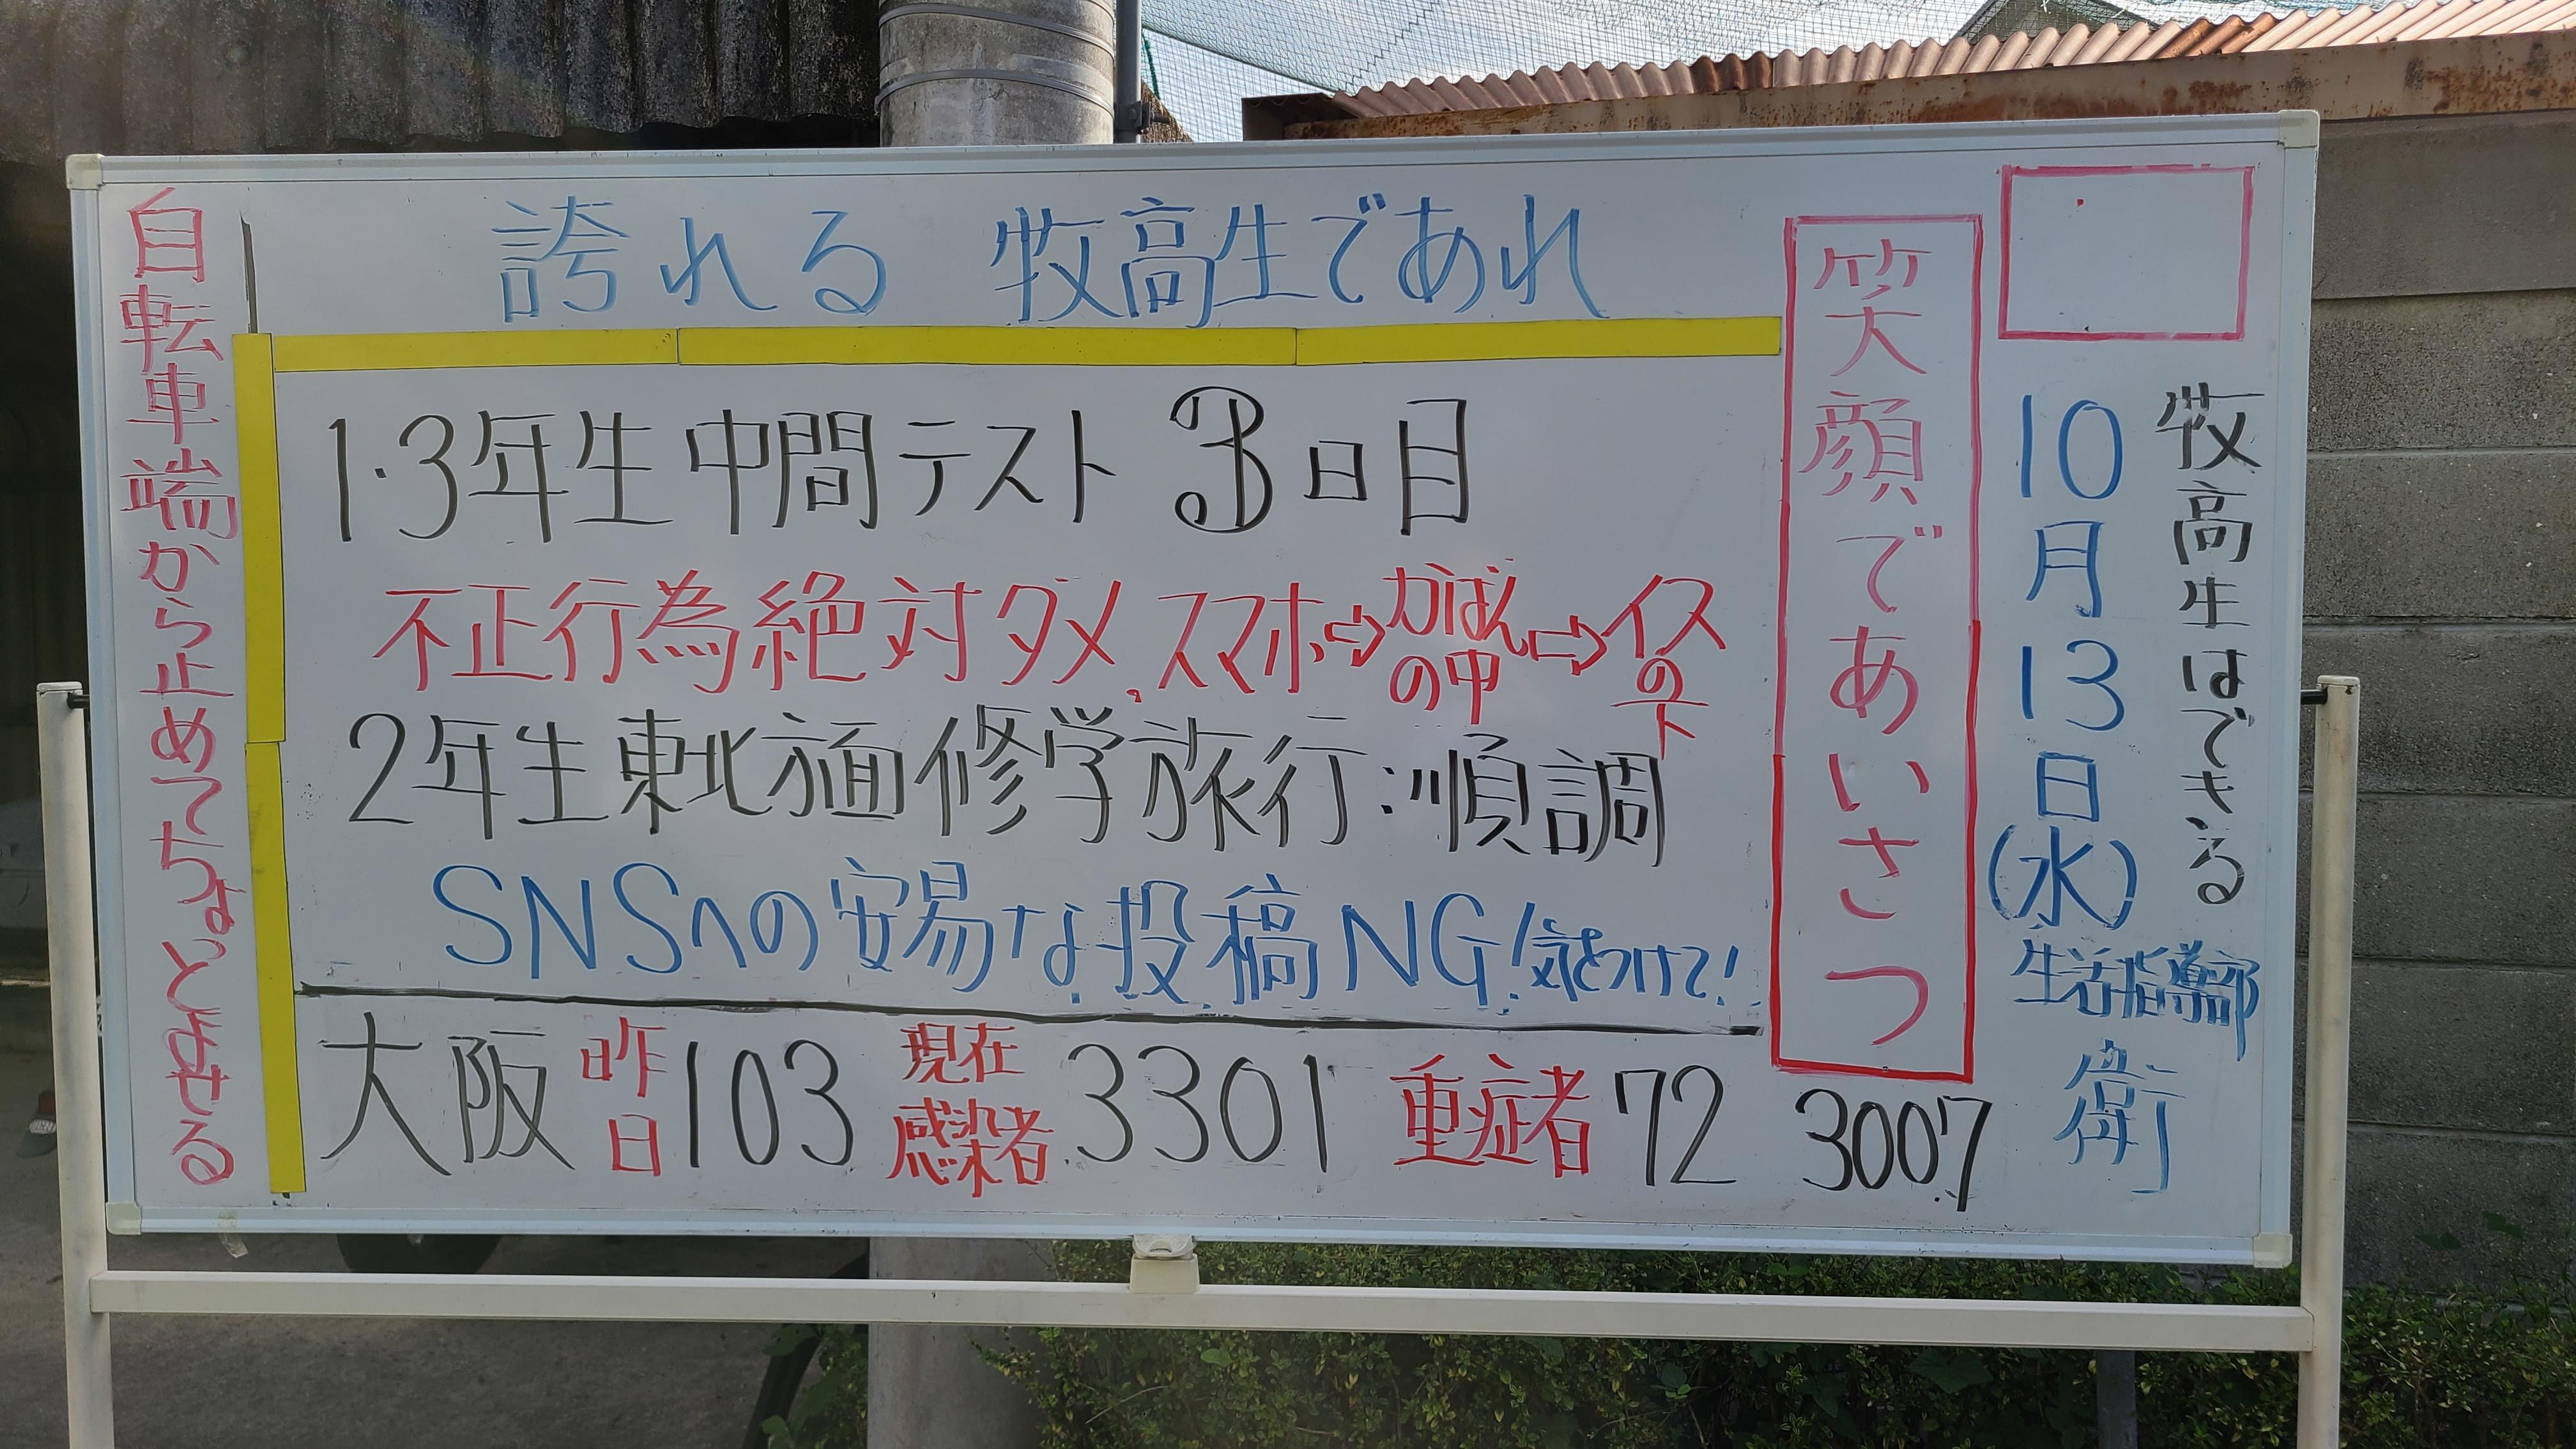 牧高生はできる
10月13日(水)
生活指導部
衛
笑顔であいさつ
誇れる 牧高生であれ
1・3年生中間テスト 3日目
不正行為絶対ダメ。スマホ⇨カばんの中⇨イスの下
2年生東北方面修学旅行:順調
SNSへの安易な投稿NG!気をつけて!
大阪 昨日103 現在感染者3301 重症者72 3007
自転車端から止めてちょとよせる